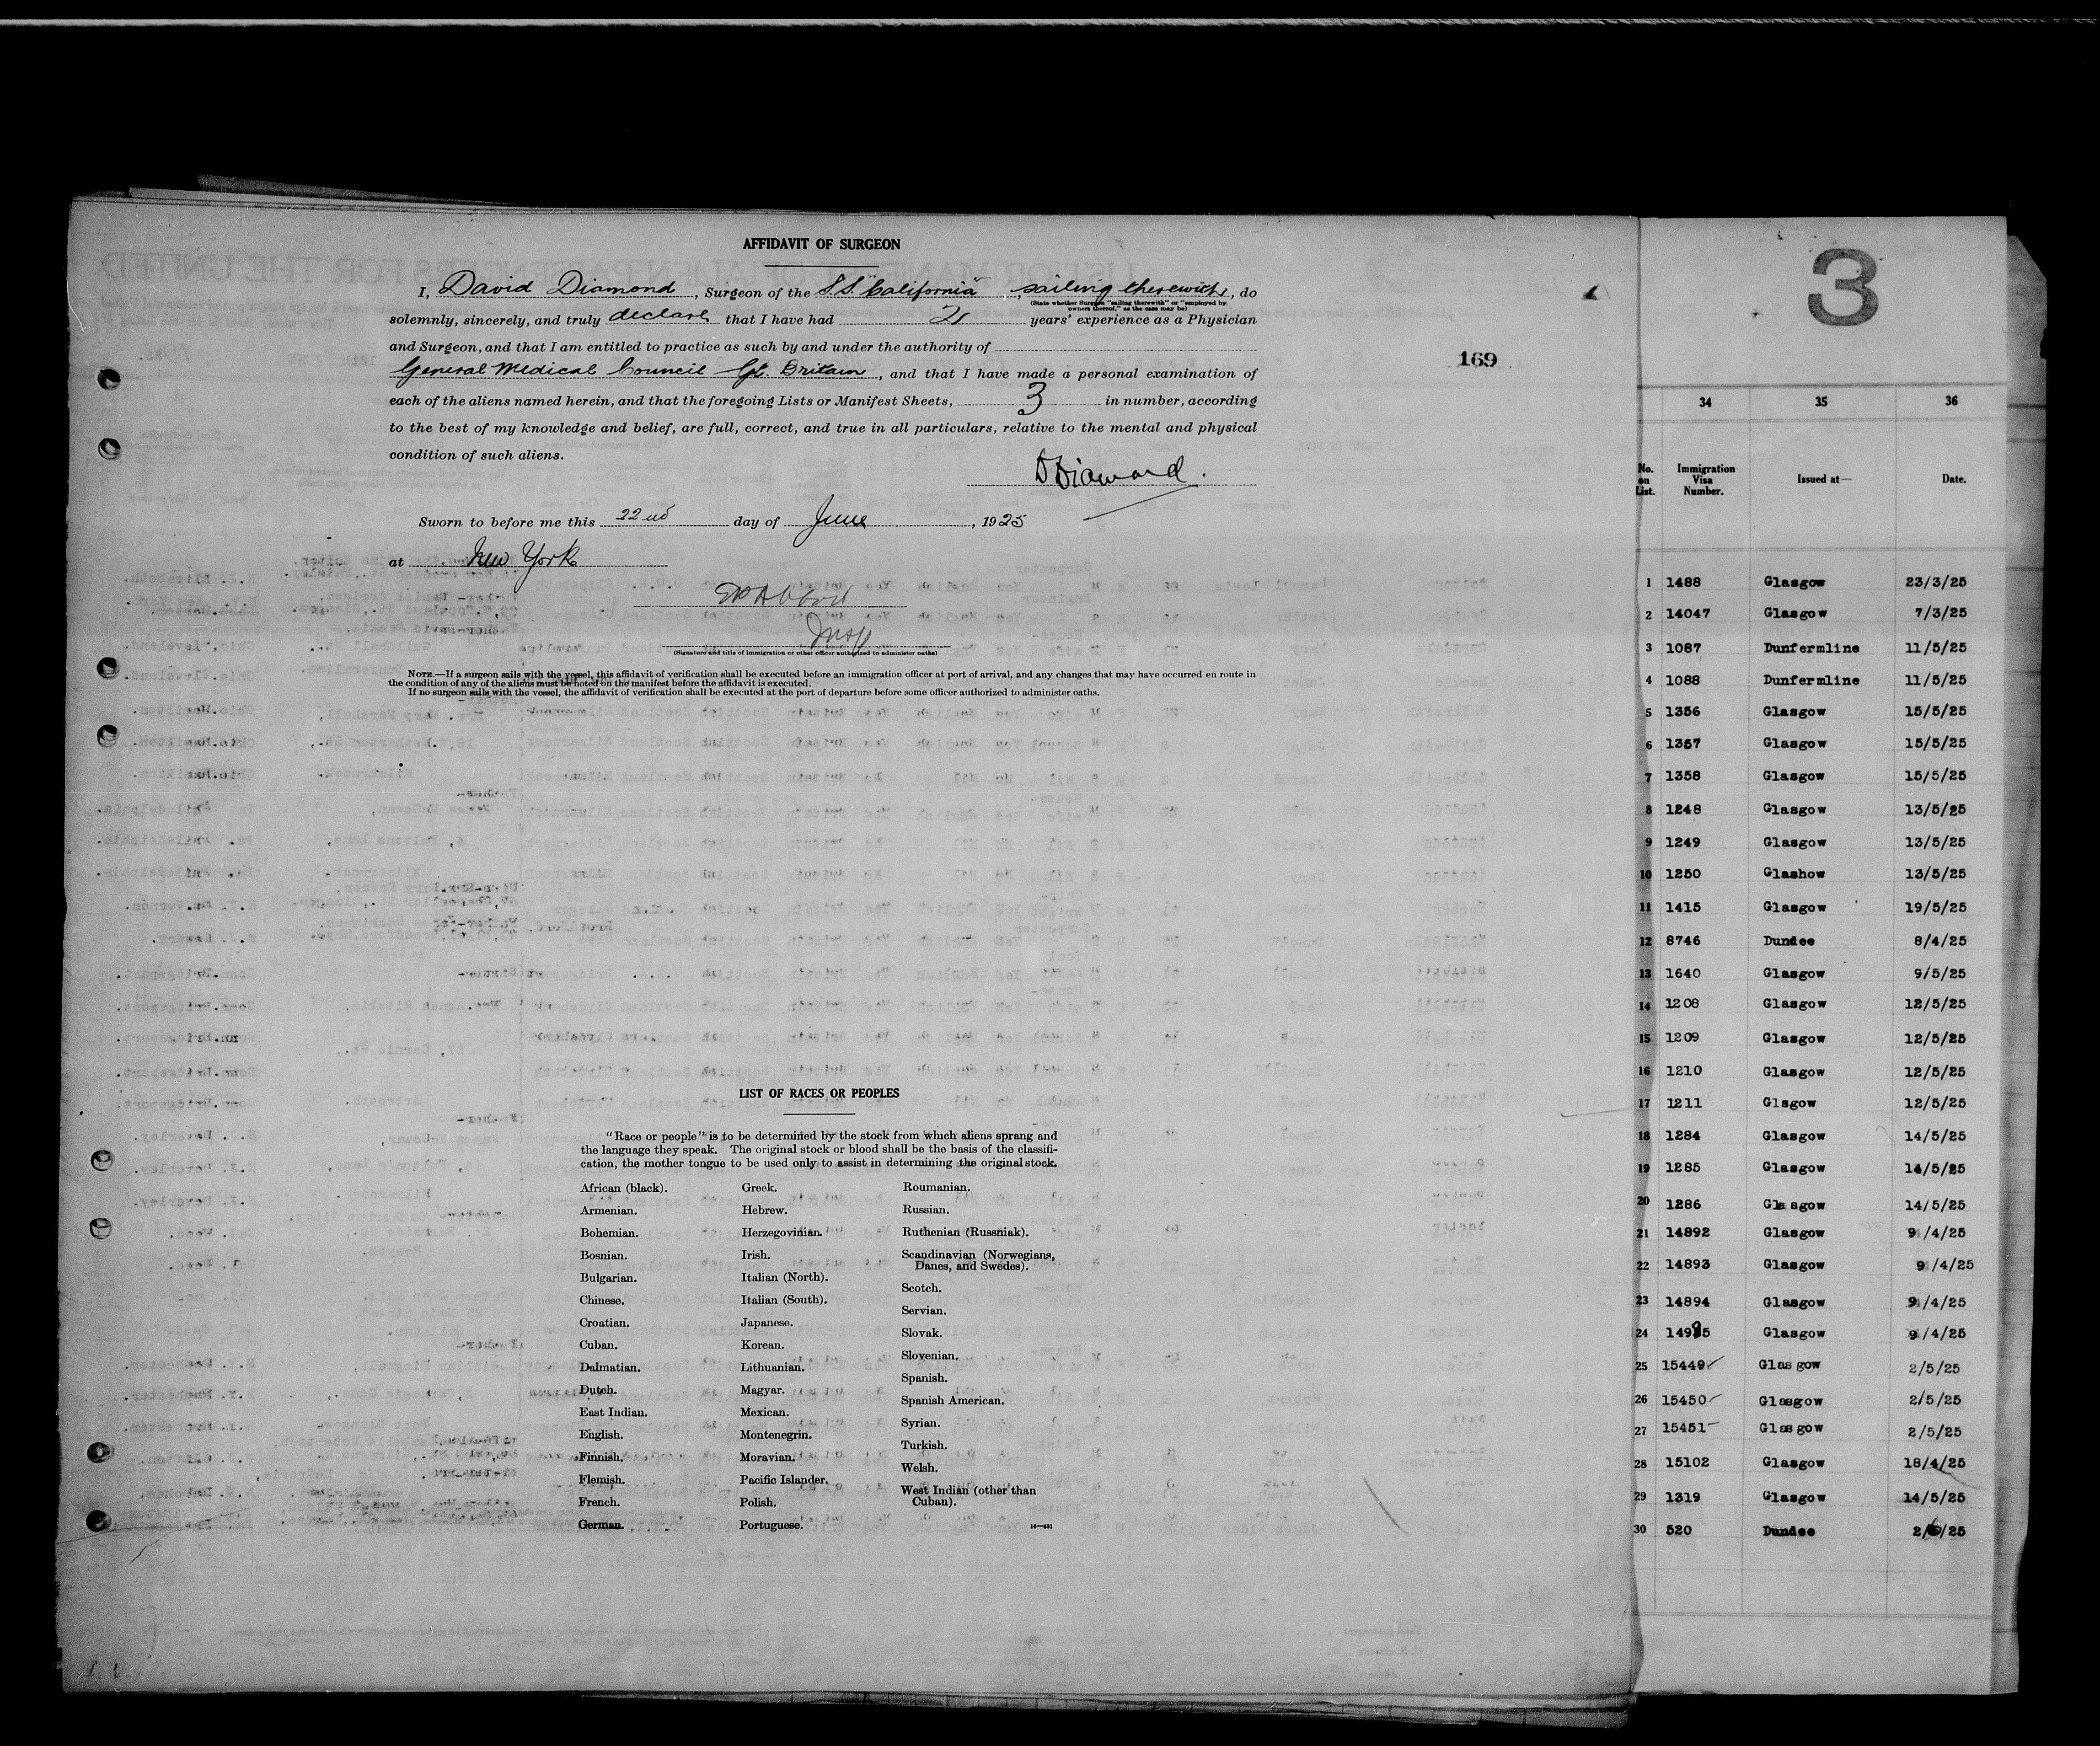 AFFIDAVIT OF SURGEON
I, David Diamond, Surgeon of the S.S. "California", sailing therewith, do
(State whether Surgeon "sailing therewith" or "employed by
owners thereof," as the case may be)
solemnly, sincerely, and truly declare that I have had 2 years' experience as a Physician
and Surgeon, and that I am entitled to practice as such by and under the authority of
General Medical Council Gt. Britain, and that I have made a personal examination of
each of the aliens named herein, and that the foregoing Lists or Manifest Sheets, 3 in number, according
to the best of my knowledge and belief, are full, correct, and true in all particulars, relative to the mental and physical
condition of such aliens.
D Diamond.
Sworn to before me this 22nd day of June, 1925
at New York
Insp
(Signature and title of immigration or other officer authorized to administer oaths)
NOTE.—If a surgeon sails with the vessel, this affidavit of verification shall be executed before an immigration officer at port of arrival, and any changes that may have occurred en route in
the condition of any of the aliens must be noted on the manifest before the affidavit is executed.
If no surgeon sails with the vessel, the affidavit of verification shall be executed at the port of departure before some officer authorized to administer oaths.
169
LIST OF RACES OR PEOPLES
"Race or people" is to be determined by the stock from which aliens sprang and
the language they speak. The original stock or blood shall be the basis of the classifi-
cation, the mother tongue to be used only to assist in determining the original stock.
African (black).
Armenian.
Bohemian.
Bosnian.
Bulgarian.
Chinese.
Croatian.
Cuban.
Dalmatian.
Dutch.
East Indian.
English.
Finnish.
Flemish.
French.
German.
Greek.
Hebrew.
Herzegovinian.
Irish.
Italian (North).
Italian (South).
Japanese.
Korean.
Lithuanian.
Magyar.
Mexican.
Montenegrin.
Moravian.
Pacific Islander.
Polish.
Portuguese.
Roumanian.
Russian.
Ruthenian (Russniak).
Scandinavian (Norwegians,
Danes, and Swedes).
Scotch.
Servian.
Slovak.
Slovenian.
Spanish.
Spanish American.
Syrian.
Turkish.
Welsh.
West Indian (other than
Cuban).
14—431
3
34 35 36
No. on List. Immigration Visa Number. Issued at— Date.
1 1488 Glasgow 23/3/25
2 14047 Glasgow 7/3/25
3 1087 Dunfermline 11/5/25
4 1088 Dunfermline 11/5/25
5 1356 Glasgow 15/5/25
6 1357 Glasgow 15/5/25
7 1358 Glasgow 15/5/25
8 1248 Glasgow 13/5/25
9 1249 Glasgow 13/5/25
10 1250 Glashow 13/5/25
11 1415 Glasgow 19/5/25
12 8746 Dundee 8/4/25
13 1640 Glasgow 9/5/25
14 1208 Glasgow 12/5/25
15 1209 Glasgow 12/5/25
16 1210 Glasgow 12/5/25
17 1211 Glsgow 12/5/25
18 1284 Glasgow 14/5/25
19 1285 Glasgow 14/5/25
20 1286 Glasgow 14/5/25
21 14892 Glasgow 9/4/25
22 14893 Glasgow 9/4/25
23 14894 Glasgow 9/4/25
24 14995 Glasgow 9/4/25
25 15449 Glasgow 2/5/25
26 15450 Glasgow 2/5/25
27 15451 Glasgow 2/5/25
28 15102 Glasgow 18/4/25
29 1319 Glasgow 14/5/25
30 520 Dundee 2/6/25